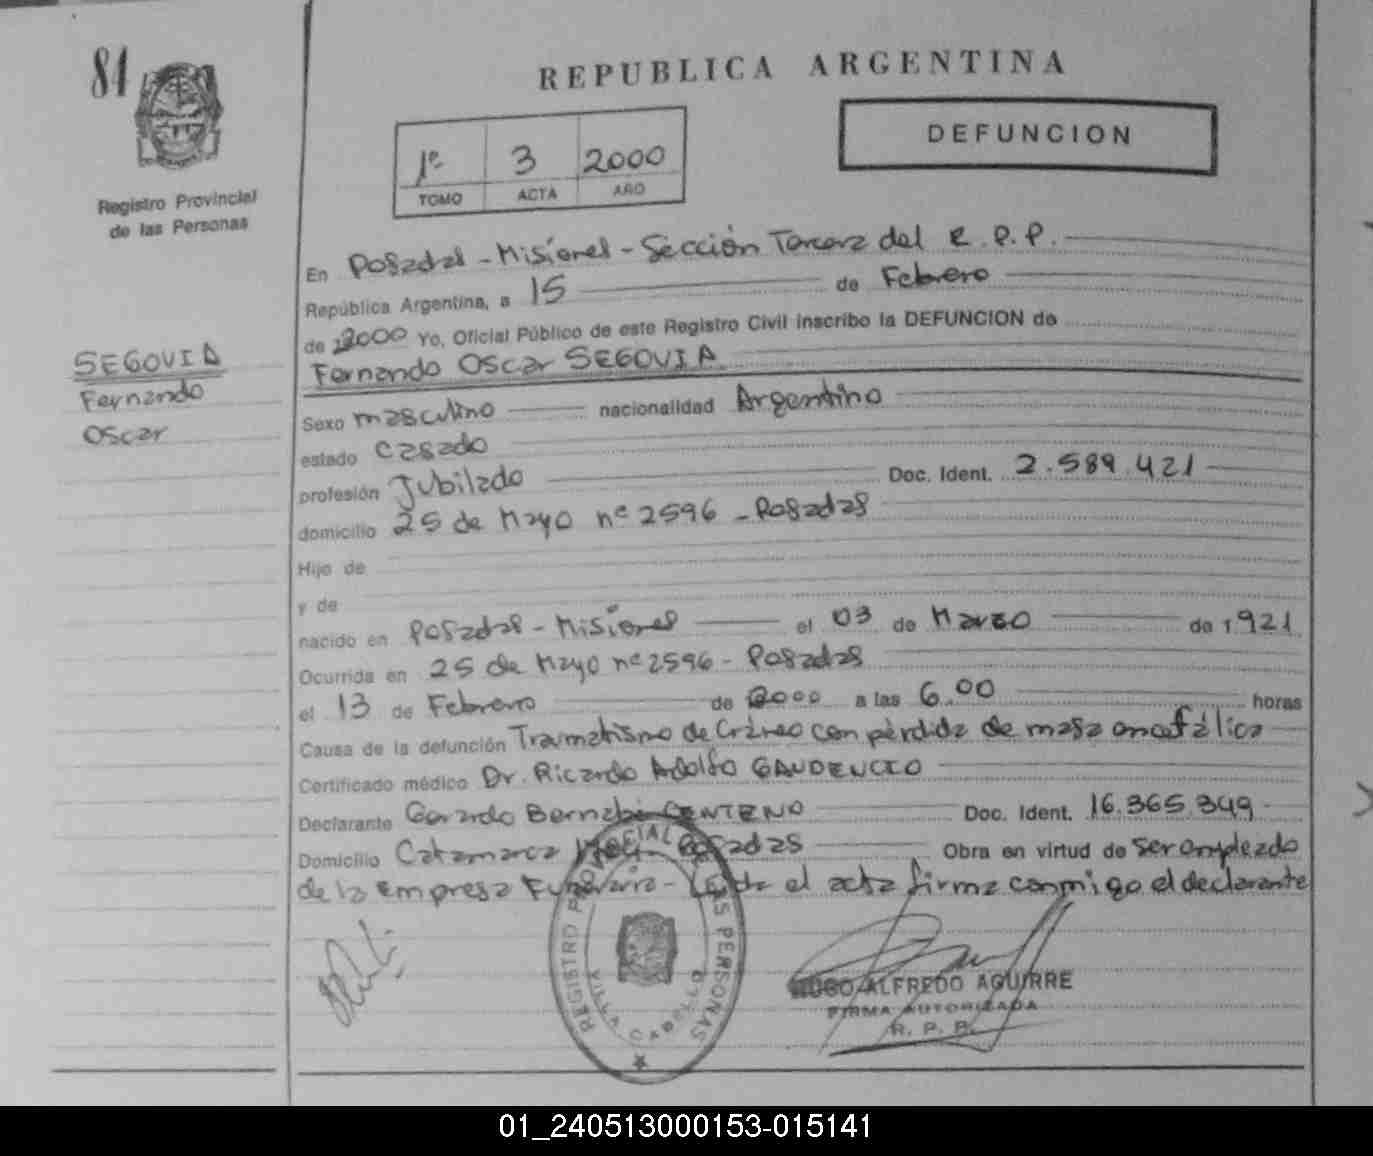 81
Registro Provincial
de las Personas
SEGOVIA
Fernando
Oscar
REPUBLICA ARGENTINA
1º 3 2000
TOMO ACTA AÑO
DEFUNCION
En Posadas - Misiones - Sección Tercera del R.P.P.
República Argentina, a 15 de Febrero
de 2000 Yo, Oficial Público de este Registro Civil inscribo la DEFUNCION de
Fernando Oscar SEGOVIA
Sexo masculino nacionalidad Argentino
estado casado
profesión Jubilado Doc. Ident. 2.589.421
domicilio 25 de Mayo nº 2596 - Posadas
Hijo de
y de
nacido en Posadas - Misiones el 03 de Marzo de 1921
Ocurrida en 25 de Mayo nº 2596 - Posadas
el 13 de Febrero de 2000 a las 6.00 horas
Causa de la defunción Traumatismo de Cráneo con pérdida de masa encefálica
Certificado médico Dr. Ricardo Adolfo GAUDENCIO
Declarante Gerardo Bernabé CENTENO Doc. Ident. 16.365.349
Domicilio Catamarca Posadas Obra en virtud de ser empleado
de la Empresa Funeraria - Leída el acta firma conmigo el declarante
REGISTRO PROVINCIAL DE LAS PERSONAS
VILLA CABELLO
HUGO ALFREDO AGUIRRE
FIRMA AUTORIZADA
R. P. P.
01_240513000153-015141